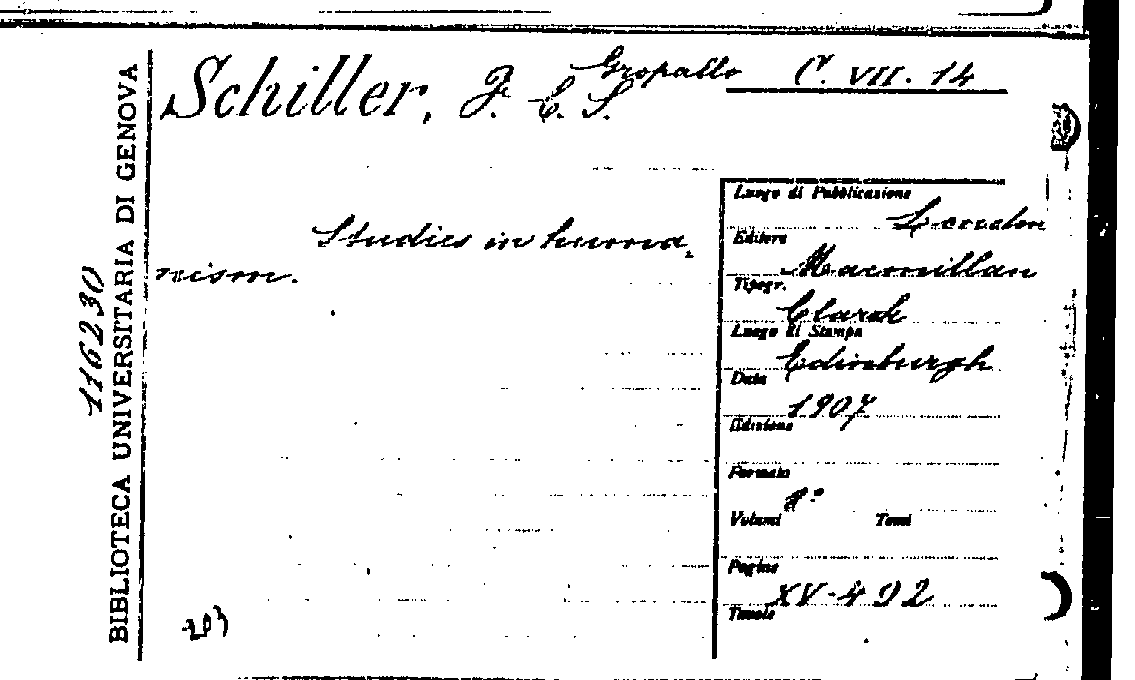 Schiller, F. C. S.
Gropallo C. VII. 14
BIBLIOTECA UNIVERSITARIA DI GENOVA
116230
Studies in huma,
nism.
Luogo di Pubblicazione
London
Editore
Macmillan
Tipogr.
Clark
Luogo di Stampa
Edinburgh
Data
1907
Edizione
Formato
8°
Volumi Tomi
Pagine
XV-492
Tavole
203